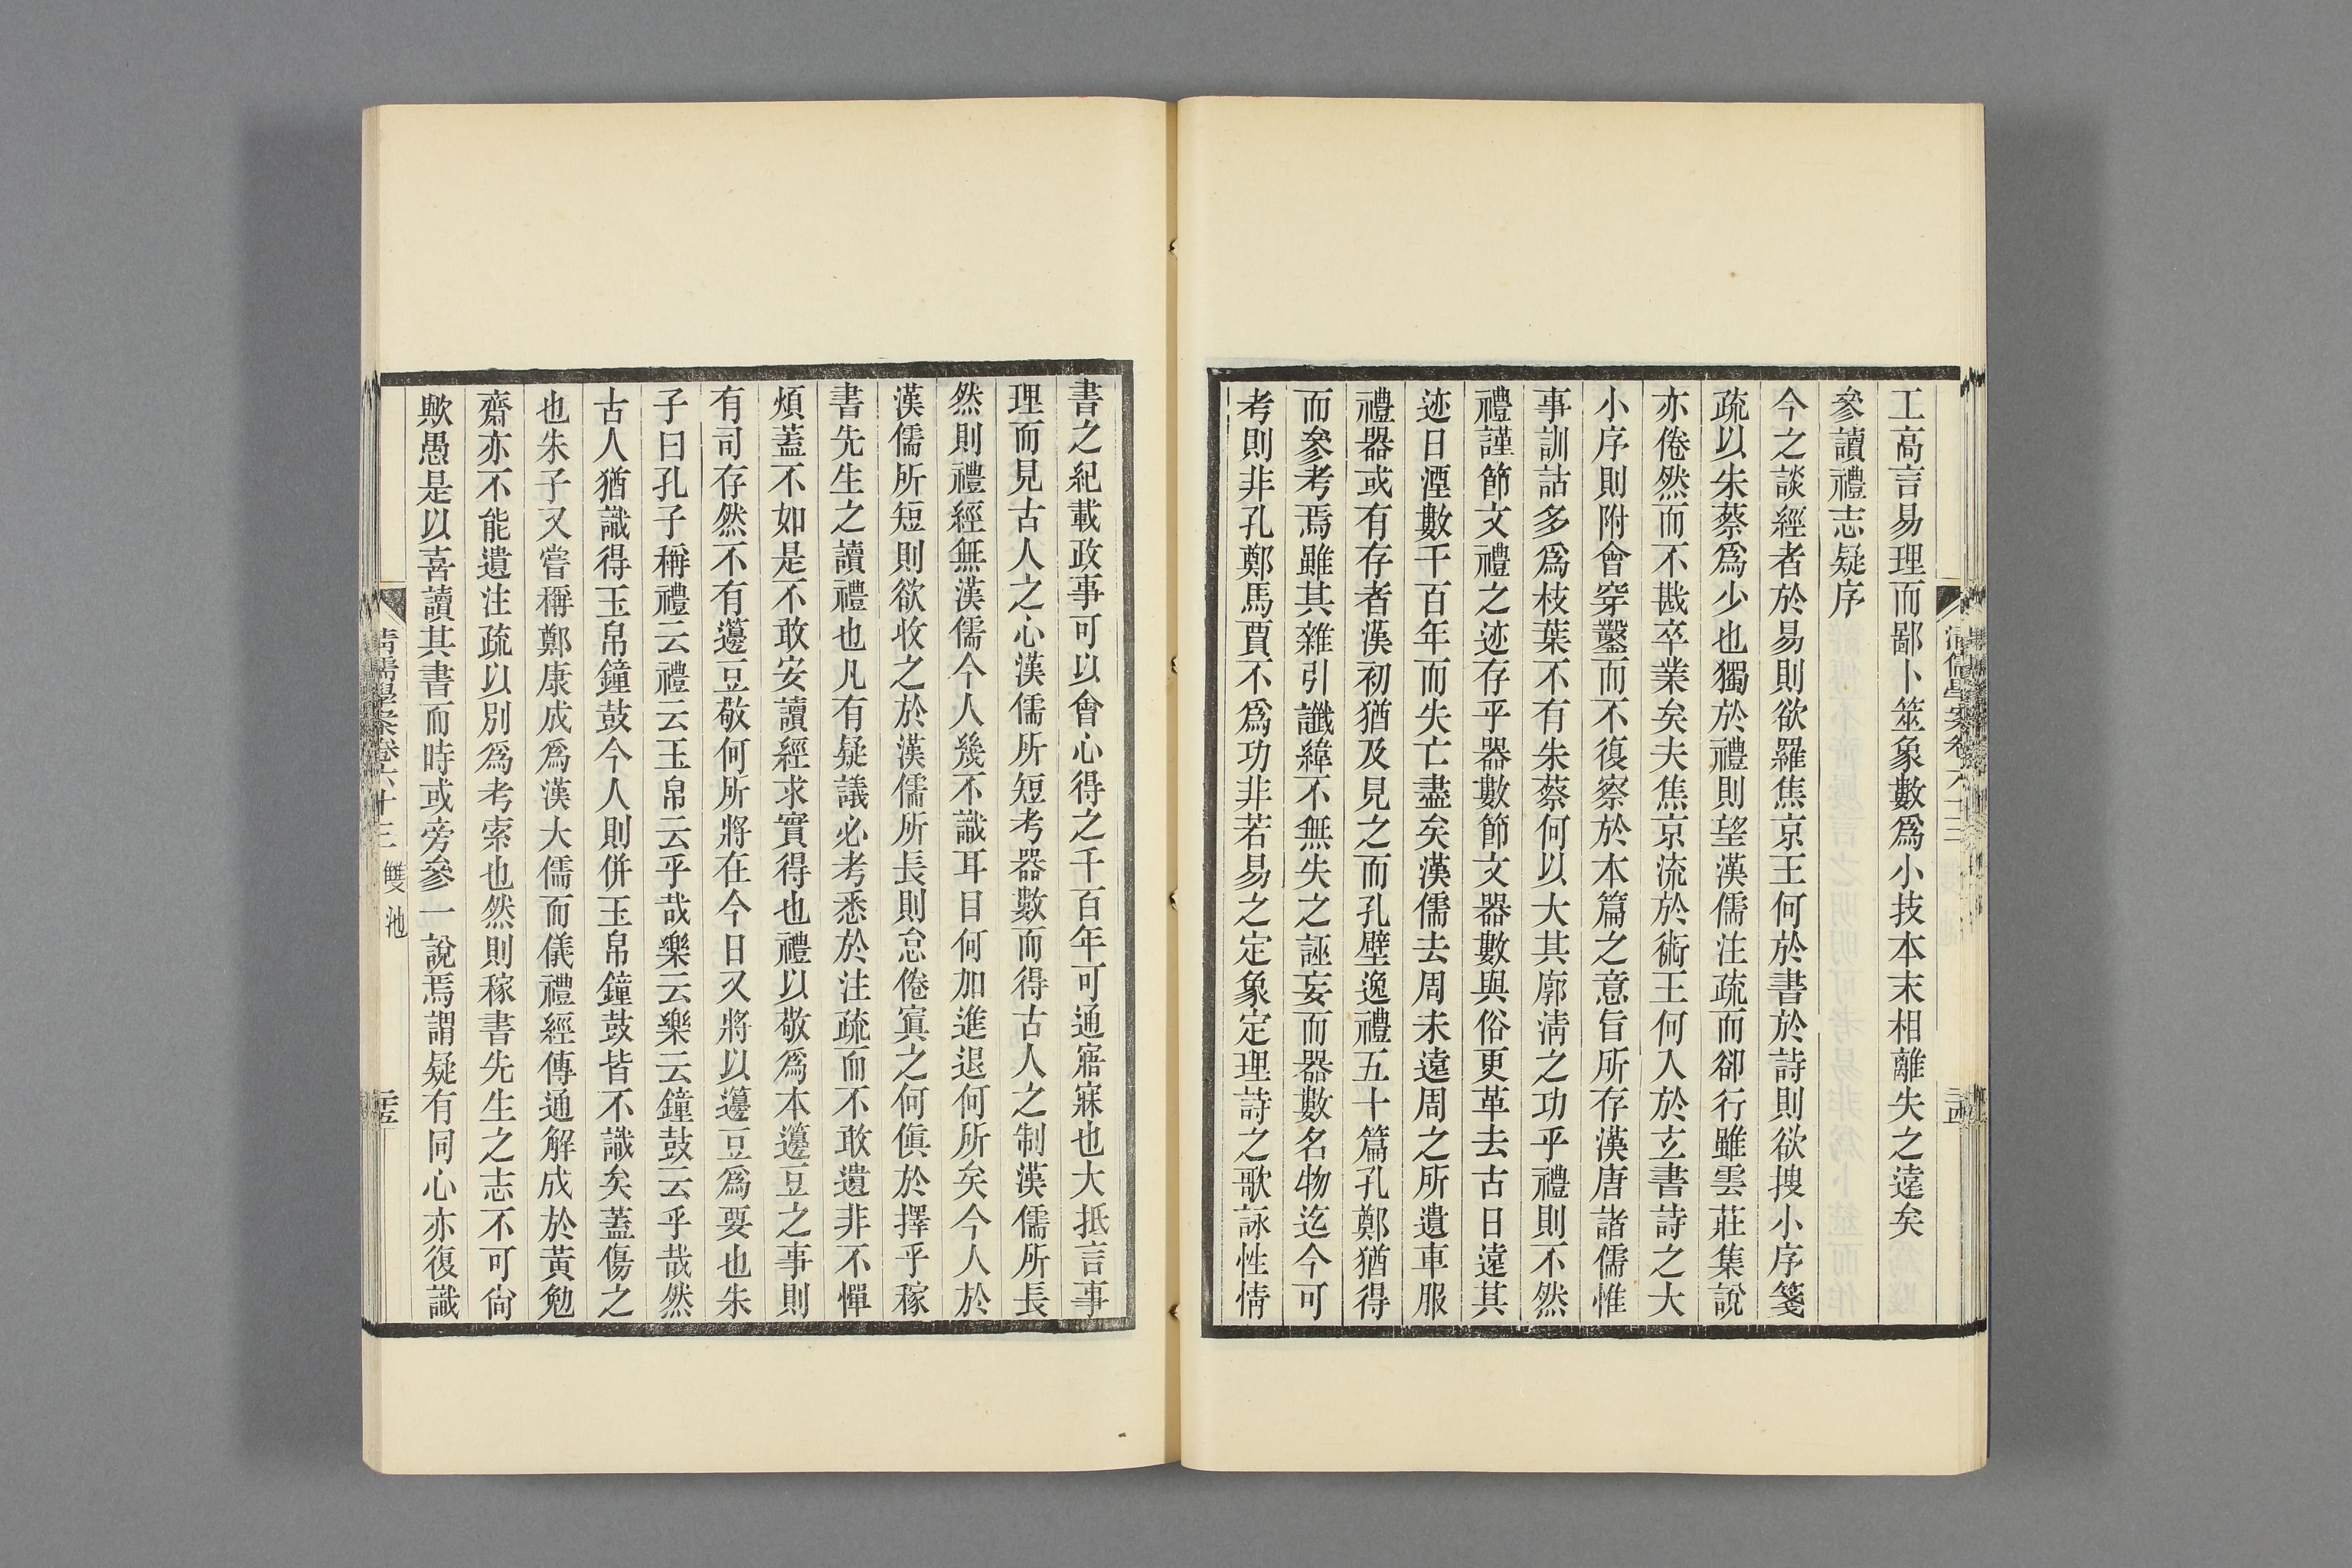 工高言易理而鄙卜筮象數爲小技本末相離失之遠矣
參讀禮志疑序
今之談經者於易則欲羅焦京王何於書於詩則欲搜小序箋
疏以朱蔡爲少也獨於禮則望漢儒注疏而卻行雖雲莊集說
亦倦然而不戡卒業矣夫焦京流於術王何入於玄書詩之大
小序則附會穿鑿而不復察於本篇之意旨所存漢唐諸儒惟
事訓詁多爲枝葉不有朱蔡何以大其廓清之功乎禮則不然
禮謹節文禮之迹存乎器數節文器數與俗更革去古日遠其
迹日湮數千百年而失亡盡矣漢儒去周未遠周之所遺車服
禮器或有存者漢初猶及見之而孔壁逸禮五十篇孔鄭猶得
而參考焉雖其雜引讖緯不無失之誣妄而器數名物迄今可
考則非孔鄭馬賈不爲功非若易之定象定理詩之歌詠性情
書之紀載政事可以會心得之千百年可通寤寐也大抵言事
理而見古人之心漢儒所短考器數而得古人之制漢儒所長
然則禮經無漢儒今人幾不識耳目何加進退何所矣今人於
漢儒所短則欲收之於漢儒所長則怠倦寘之何傎於擇乎稼
書先生之讀禮也凡有疑議必考悉於注疏而不敢遺非不憚
煩蓋不如是不敢安讀經求實得也禮以敬爲本籩豆之事則
有司存然不有籩豆敬何所將在今日又將以籩豆爲要也朱
子曰孔子稱禮云禮云玉帛云乎哉樂云樂云鐘鼓云乎哉然
古人猶識得玉帛鐘鼓今人則併玉帛鐘鼓皆不識矣蓋傷之
也朱子又嘗稱鄭康成爲漢大儒而儀禮經傳通解成於黃勉
齋亦不能遺注疏以別爲考索也然則稼書先生之志不可尙
歟愚是以喜讀其書而時或旁參一說焉謂疑有同心亦復識
清儒學案卷六十三 雙池